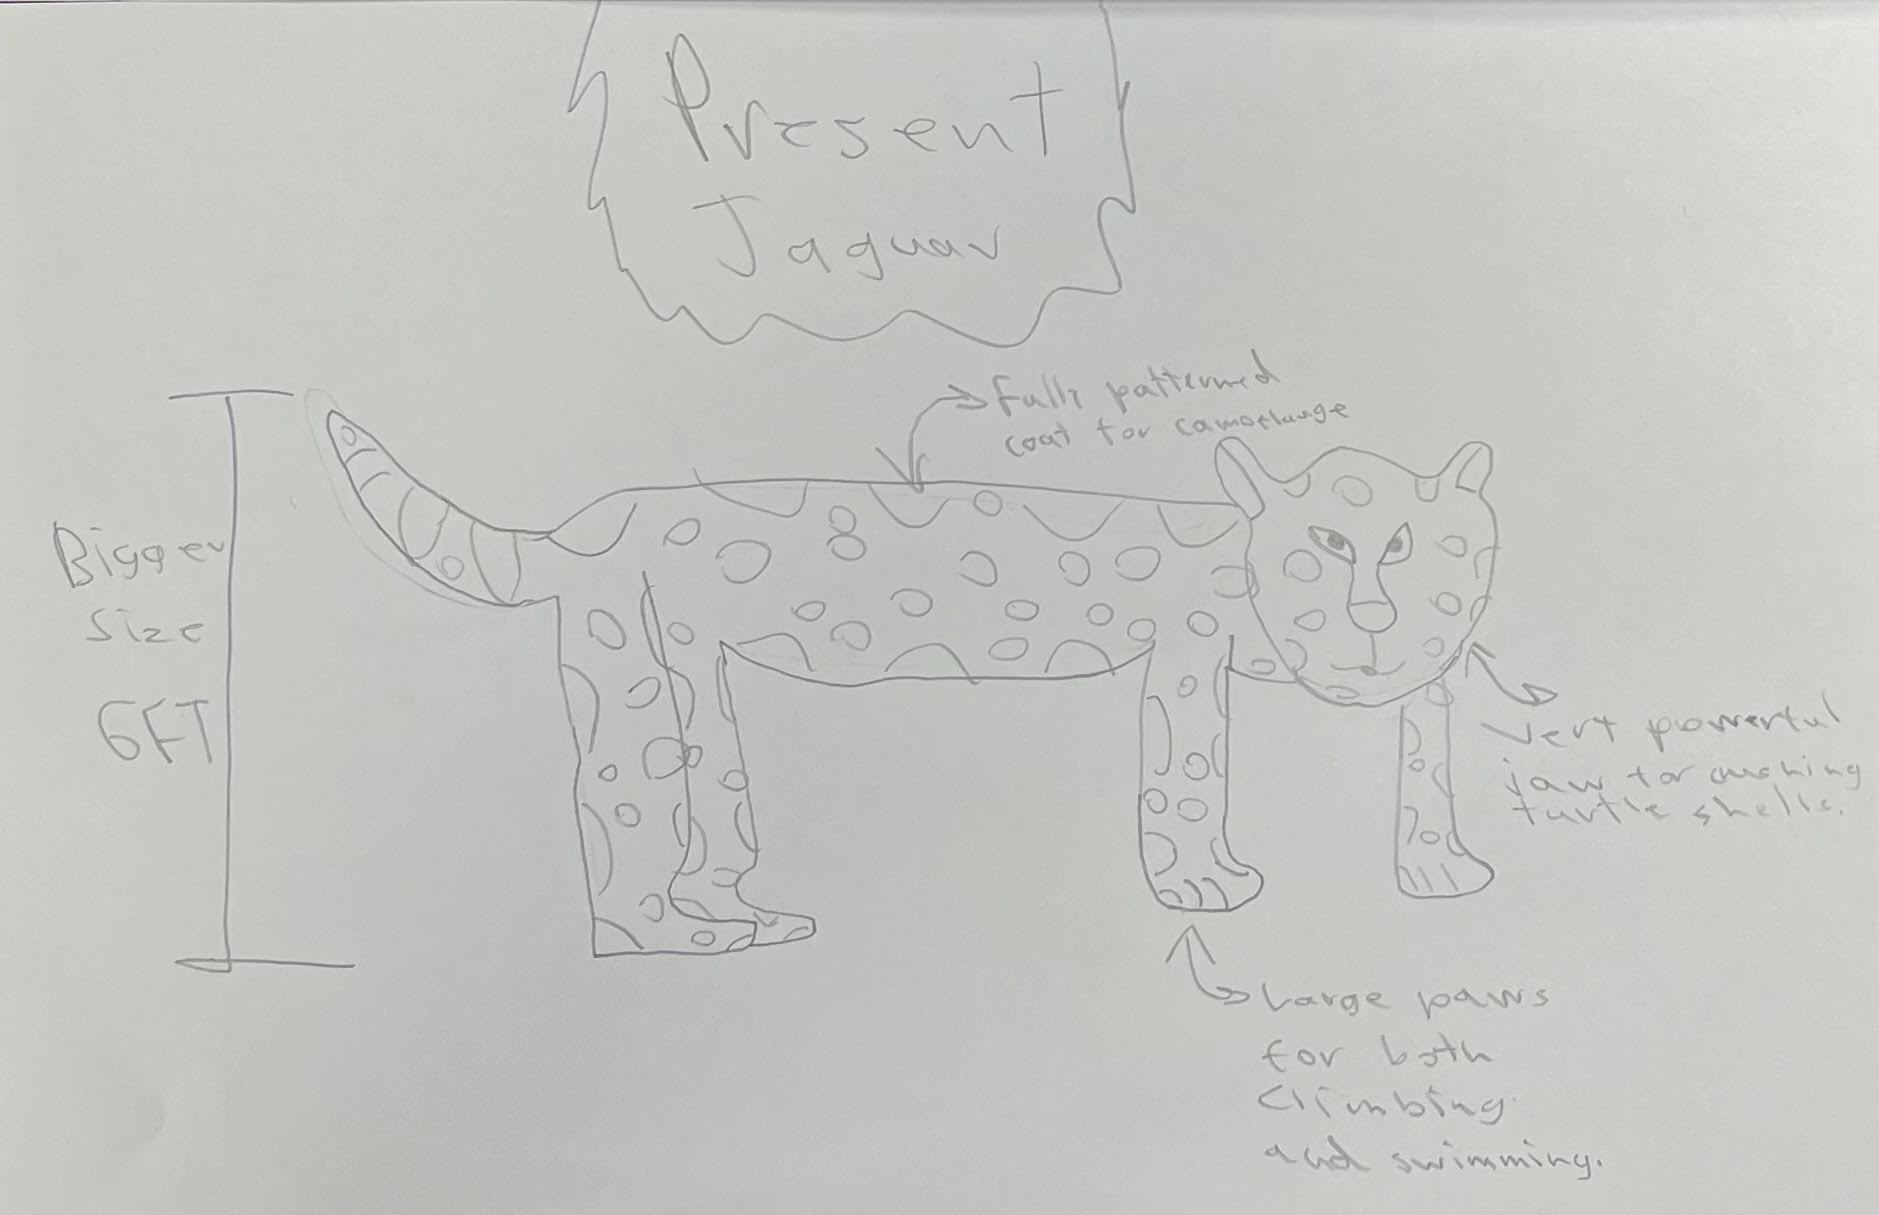 Present
Jaguar
Fully patterned
coat for camoflauge
Bigger
size
6FT
Very powerful
jaw for crushing
turtle shells.
Large paws
for both
climbing
and swimming.